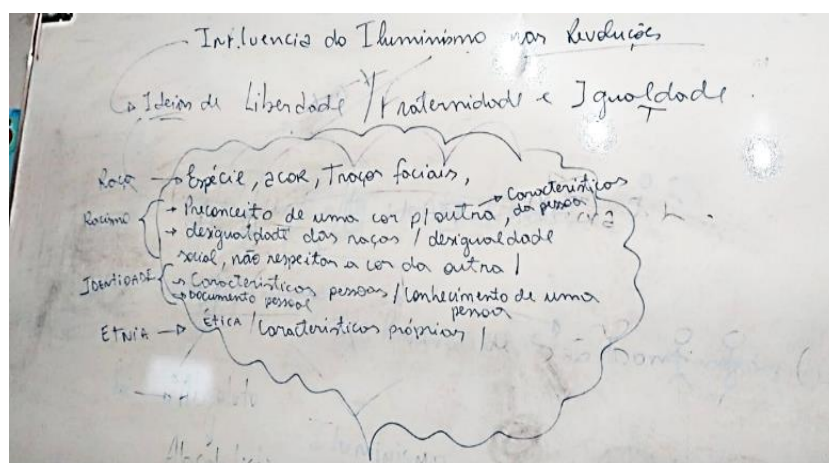 Influencia do Iluminismo nas Revoluções
Ideias de Liberdade / Fraternidade e Igualdade
Raça → Espécie, a cor, Traços faciais,
Racismo → Preconceito de uma cor p/ outra, → Características da pessoa
→ desigualdade das raças / desigualdade
social, não respeitar a cor da outra /
IDENTIDADE → Características pessoas / Conhecimento de uma pessoa
→ Documento pessoal
ETNIA → ÉTICA / Características próprias /